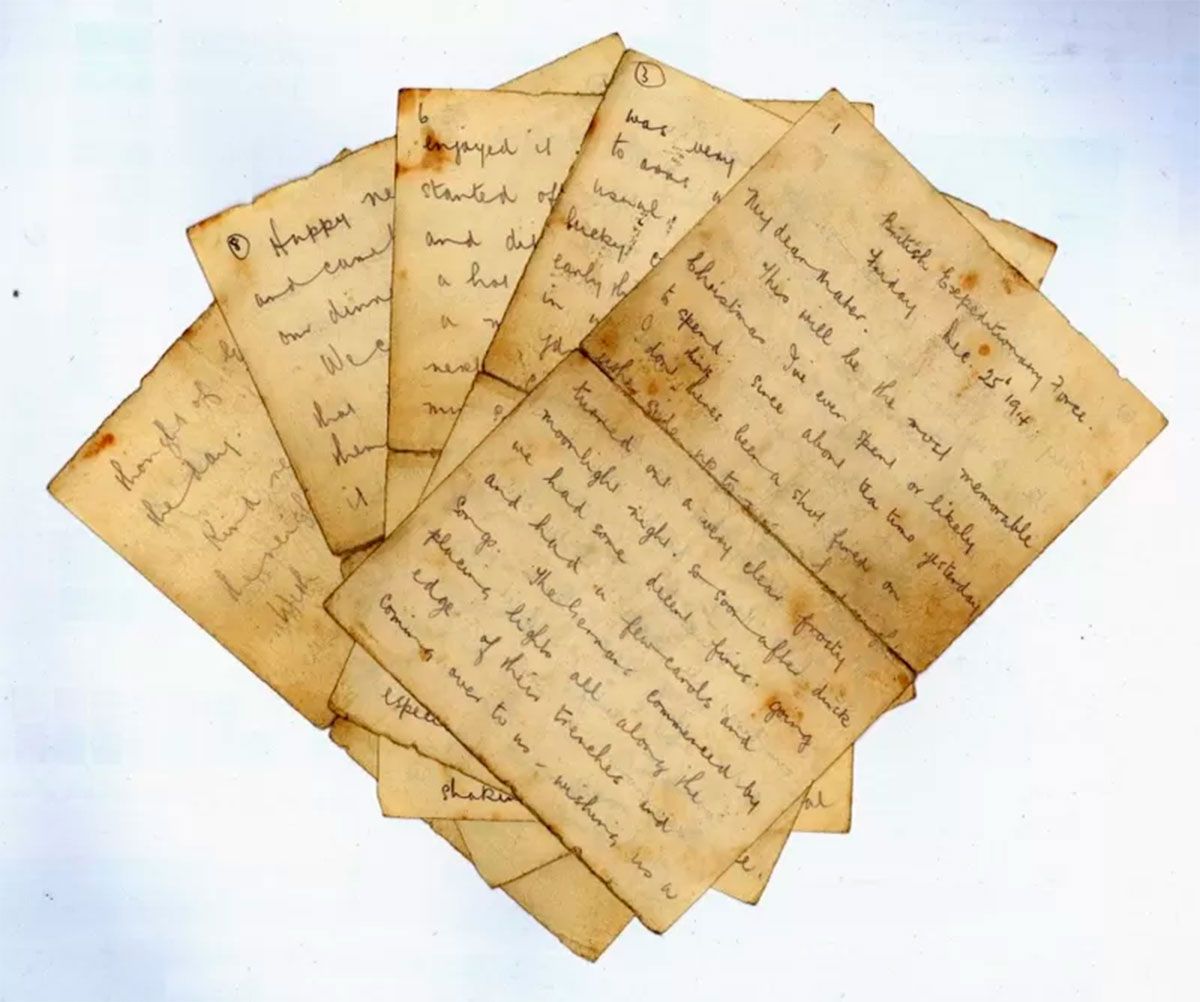 1
British Expeditionary Force
Friday Dec. 25th 1914.
My dear Mater.
This will be the most memorable
Christmas I've ever spent or likely
to spend. Since about tea time yesterday
I don't think there's been a shot fired on
either side up to
turned out a very clear frosty
moonlight night, so soon after dusk
we had some decent fires going
and had a few carols and
songs. The Germans commenced by
placing lights all along the
edge of their trenches and
coming over to us - wishing us a
3
was very
to
usual
lucky
early th
in
6
enjoyed it
started of
and di
a hot
a
next
8
Happy ne
and came
our dinn
We c
that
them
it
thought of
the day.
Kind
Wish
espec
shakin